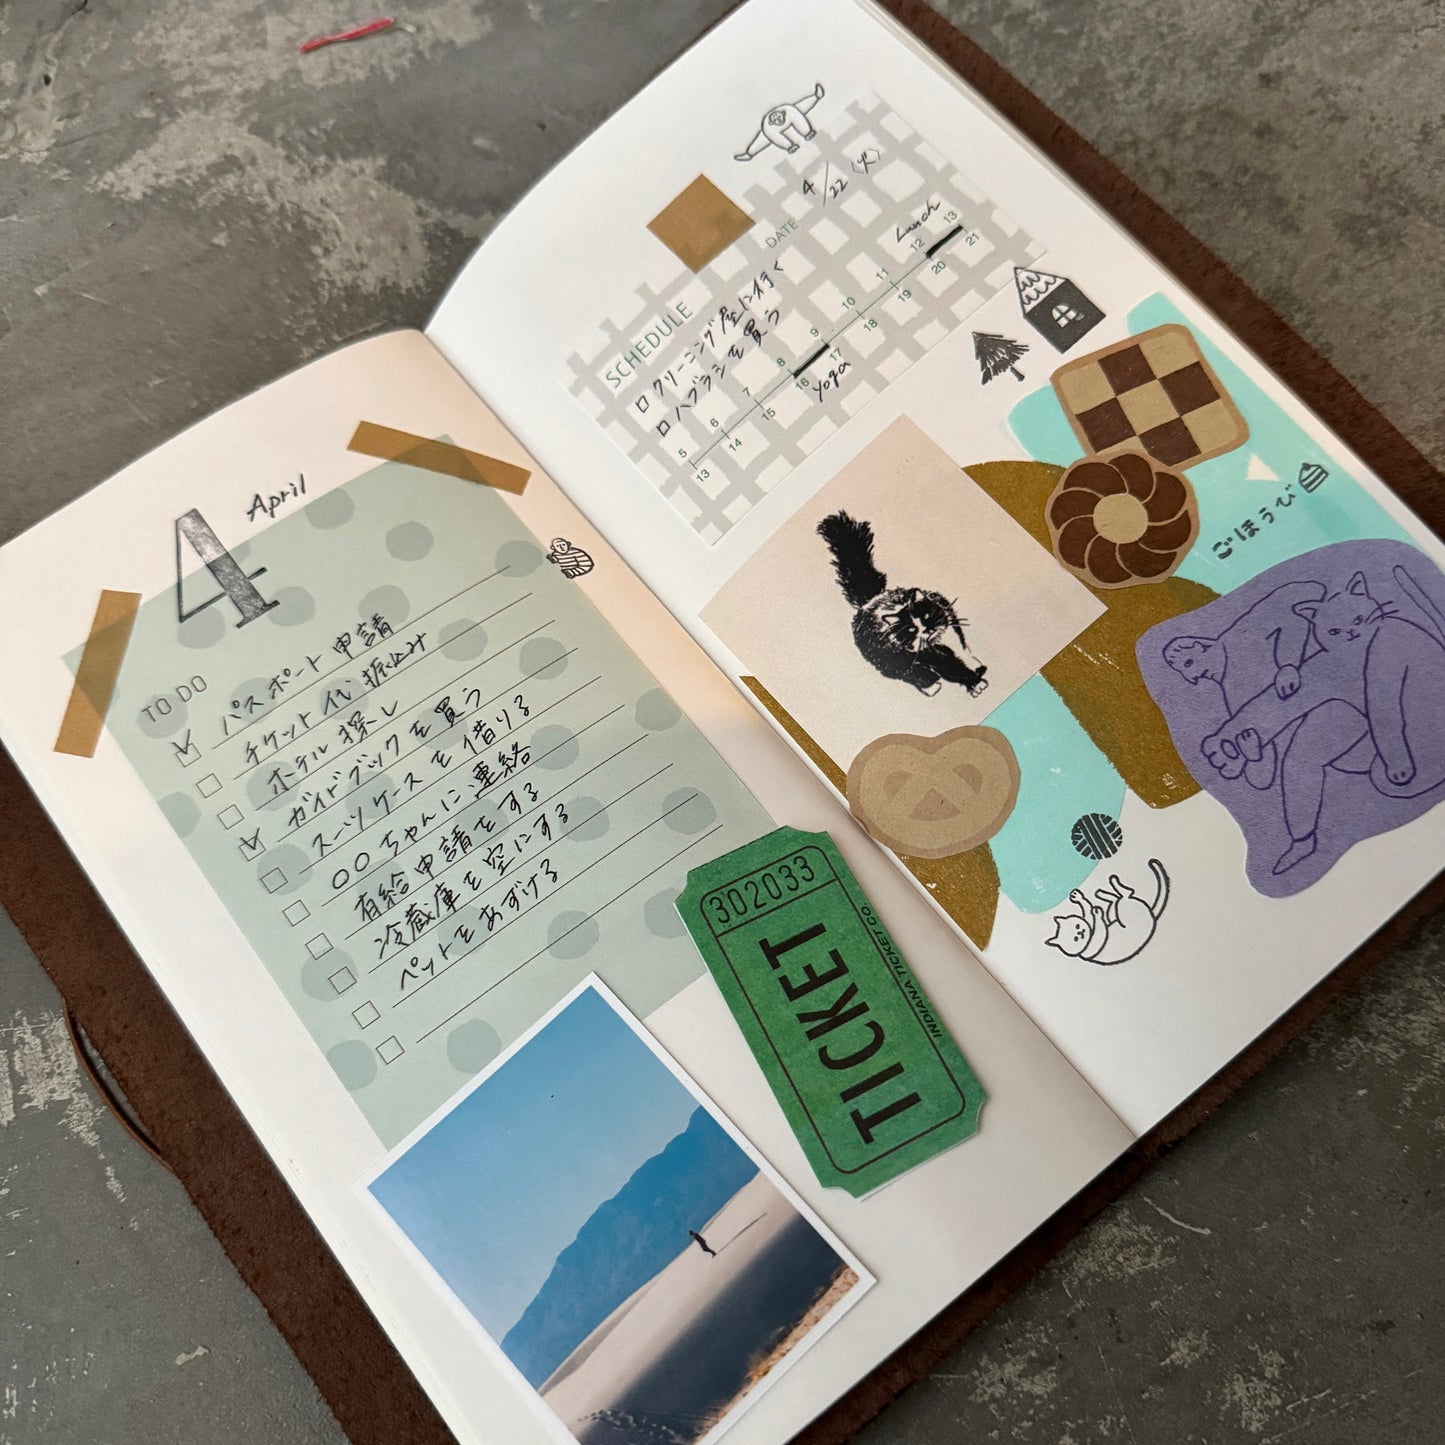 4
April
TO DO
パスポート申請
チケット代振込み
ホテル探し
ガイドブックを買う
スーツケースを借りる
〇〇ちゃんに連絡
有給申請をする
冷蔵庫を空にする
ペットをあずける
302033
TICKET
INDIANA TICKET CO.
DATE
4/22 (火)
SCHEDULE
クリーニング屋に行く
ハブラシを買う
Lunch
5 6 7 8 9 10 11 12 13
13 14 15 16 17 18 19 20 21
yoga
ごほうび